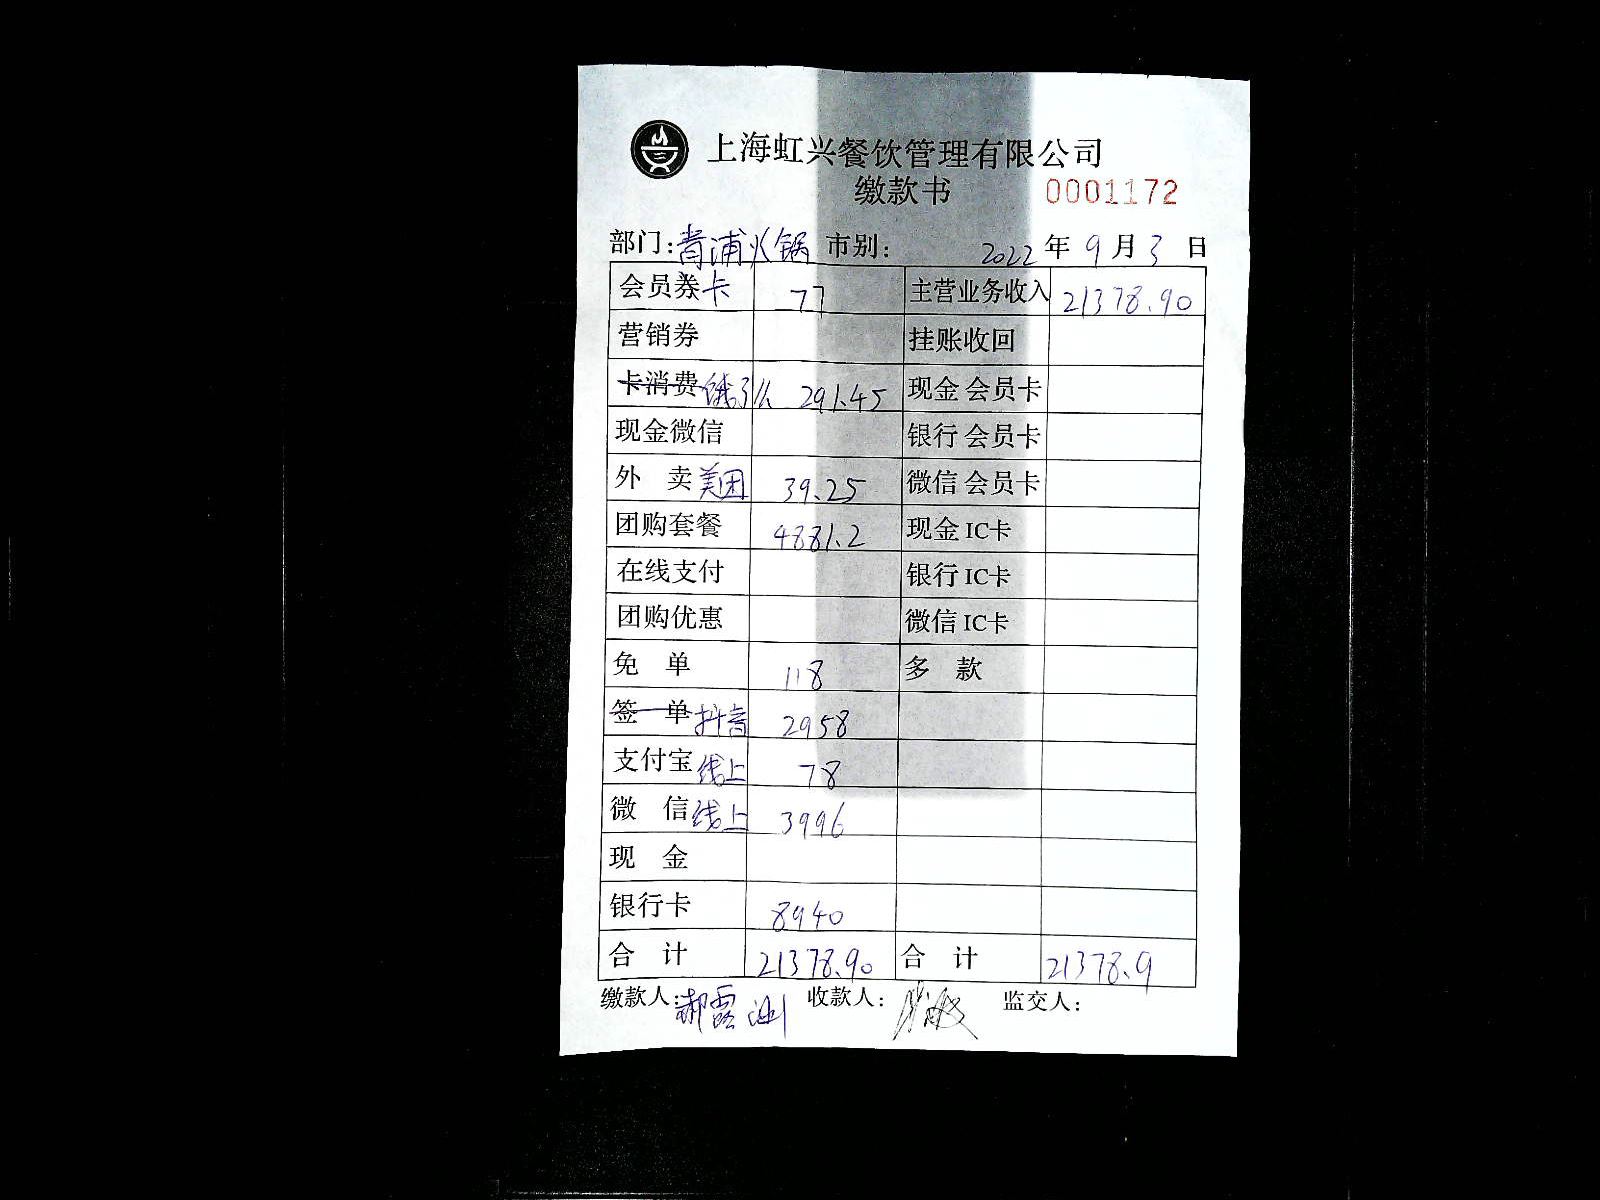 上海虹兴餐饮管理有限公司
缴款书 0001172
部门:青浦火锅 市别: 2022 年 9 月 3 日
会员券卡 77 主营业务收入 21378.90
营销券 挂账收回
卡消费 饿了么 291.45 现金 会员卡
现金微信 银行 会员卡
外 卖 美团 39.25 微信 会员卡
团购套餐 4881.2 现金 IC卡
在线支付 银行 IC卡
团购优惠 微信 IC卡
免 单 118 多 款
签 单 抖音 2958
支付宝 线上 78
微 信 线上 3996
现 金
银行卡 8940
合 计 21378.90 合 计 21378.9
缴款人: 郝露 收款人: 监交人: